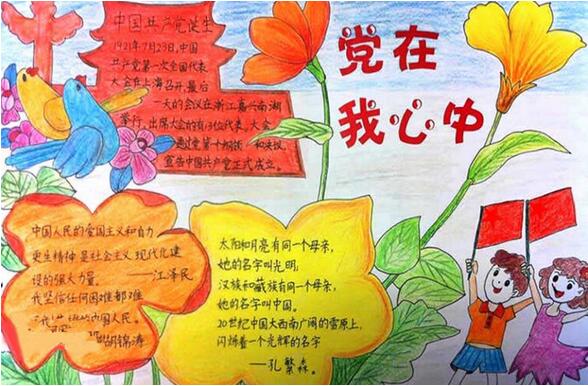 党在
我心中
中国共产党诞生
1921年7月23日,中国
共产党第一次全国代表
大会在上海召开,最后
一天的会议在浙江嘉兴南湖
举行。出席大会的有13位代表。大会
通过党第个纲领和决议,
宣告中国共产党正式成立。
中国人民的爱国主义和自力
更生精神是社会主义现代化建
设的强大力量。
——江泽民
我坚信任何困难都难
中国人民。
胡锦涛
太阳和月亮有同一个母亲,
她的名字叫光明;
汉族和藏族有同一个母亲,
她的名字叫中国。
20世纪中国大西南广阔的雪原上,
闪烁着一个光辉的名字
——孔繁森。